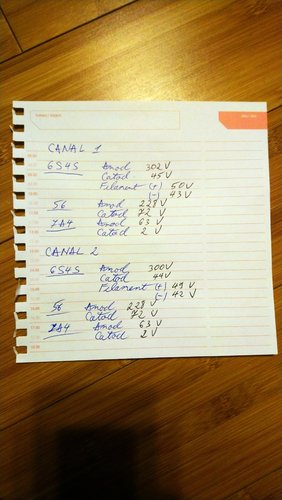 CANAL 1
6S4S Anod 302 V
Catod 45 V
Filament (+) 50 V
(-) 43 V
56 Anod 228 V
Catod 72 V
7A4 Anod 63 V
Catod 2 V
CANAL 2
6S4S Anod 300 V
Catod 44 V
Filament (+) 49 V
(-) 42 V
56 Anod 228 V
Catod 72 V
7A4 Anod 63 V
Catod 2 V